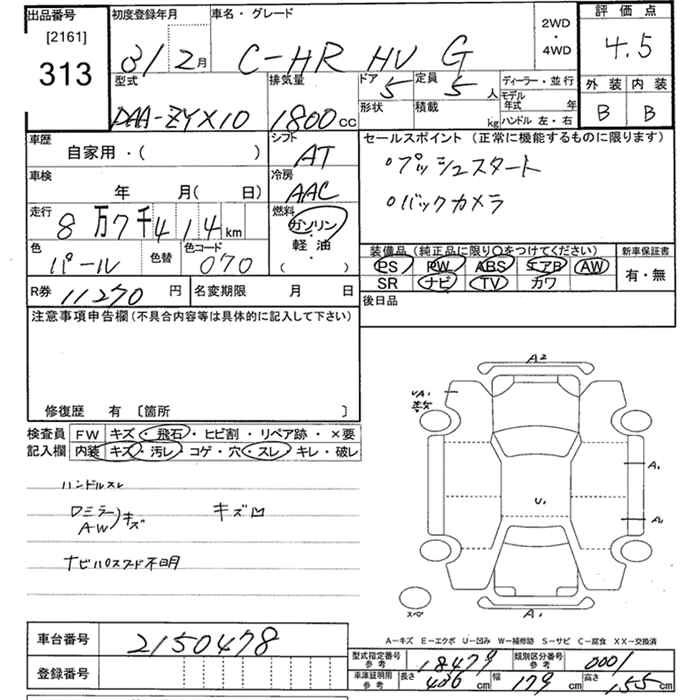 出品番号 初度登録年月 車名・グレード 2WD 評価点
[2161] ・
313 31/2月 C-HR HV G 4WD 4.5
型式 排気量 ドア 定員 ディーラー・並行 外装 内装
DAA-ZYX10 1800cc 5 5人 モデル年式 年 B B
形状 積載 kg ハンドル 左・右
車歴 シフト セールスポイント (正常に機能するものに限ります)
自家用・( ) AT ○プッシュスタート
車検 冷房
年 月( 日) AAC ○バックカメラ
走行 燃料
8万7千414km ガソリン・軽油・( )
色 色替 色コード 装備品(純正品に限り○をつけてください) 新車保証書
パール 070 PS PW ABS エアB AW 有・無
R券 11270円 名変期限 月 日 SR ナビ TV カワ
注意事項申告欄(不具合内容等は具体的に記入して下さい) 後日品
修復歴 有 〔箇所 〕
検査員 FW キズ・飛石・ヒビ割・リペア跡・×要
記入欄 内装 キズ・汚レ・コゲ・穴・スレ・キレ・破レ
ハンドルスレ
ロミラー
AW )キズ キズ凹
ナビパスワード不明
A2
A1
U1
A1
スペア
A-キズ E-エクボ U-凹み W-補修跡 S-サビ C-腐食 XX-交換済
車台番号 2150478
登録番号
型式指定番号参考 18479 類別区分番号参考 0001
車庫証明用参考 長さ 436cm 幅 179cm 高さ 155cm